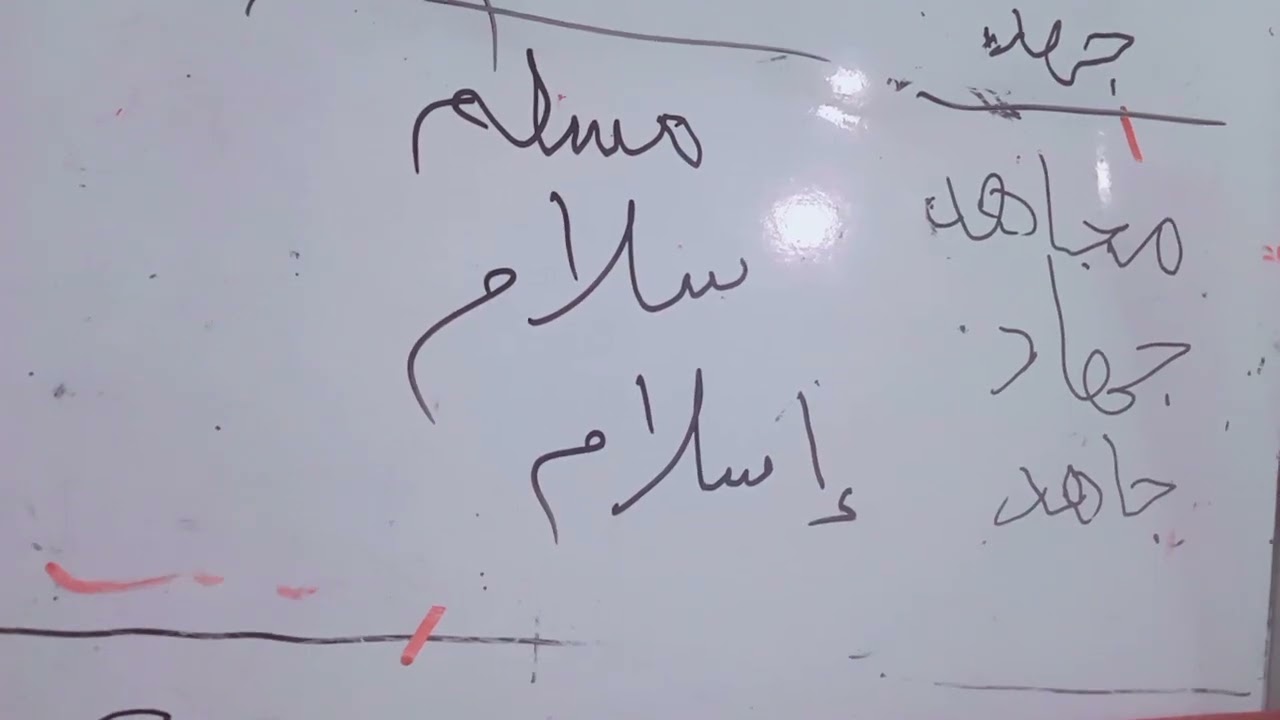 جهد
مجاهد
جهاد
جاهد
مسلم
سلام
إسلام